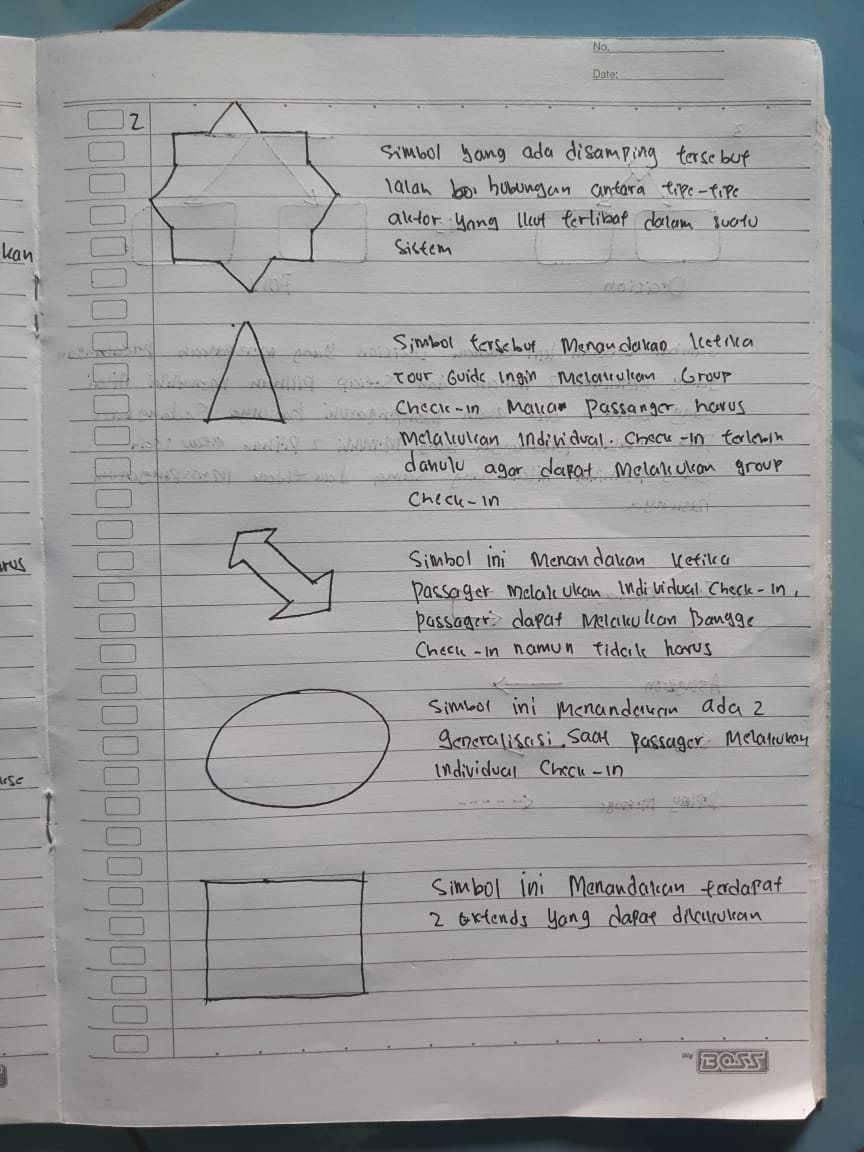 No.
Date:
2
Simbol yang ada disamping tersebut
ialah hubungan antara tipe-tipe
aktor yang ikut terlibat dalam suatu
Sistem
kan
Simbol tersebut Menandakan ketika
Tour Guide ingin Melakukan Group
Check-in Maka Passanger harus
Melakukan individual Check-in terlebih
dahulu agar dapat Melakukan group
Check-in
Simbol ini Menandakan ketika
rus
Passager Melakukan Individual Check-in,
Passager dapat Melakukan Bangge
Check-in namun tidak harus
Simbol ini Menandakan ada 2
generalisasi Saat Passager Melakukan
Individual Check-in
Simbol ini Menandakan terdapat
2 extends yang dapat dilakukan
by BOSS